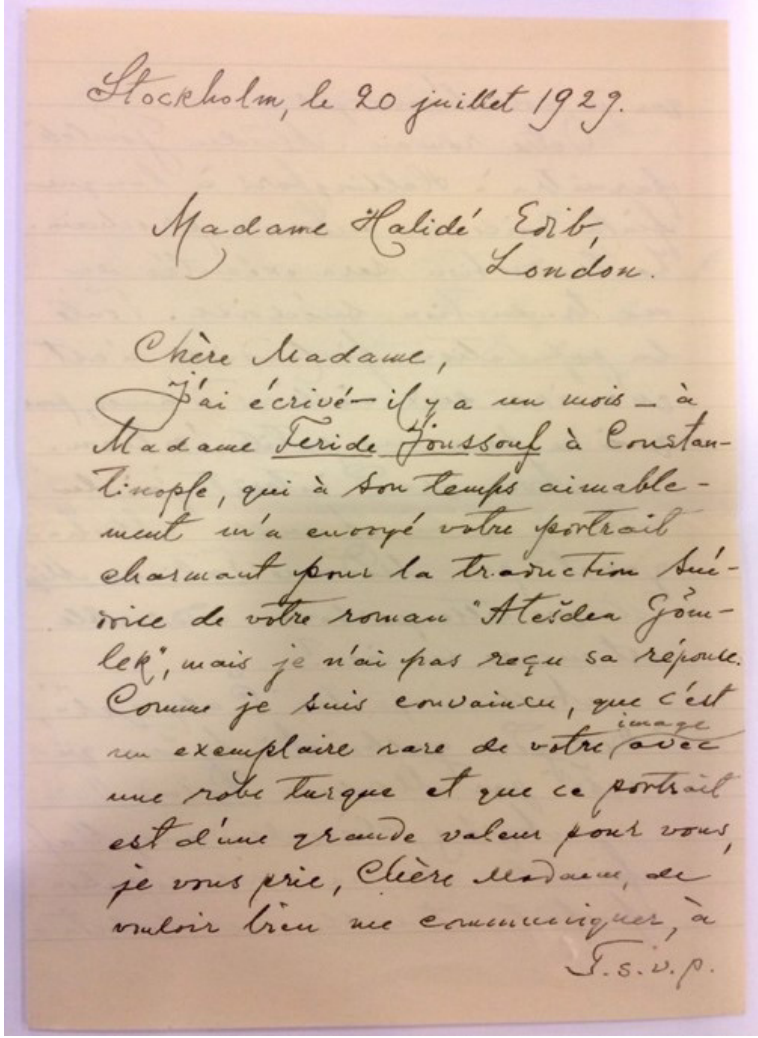 Stockholm, le 20 juillet 1929.
Madame Halidé Edib,
London.
Chère Madame,
J'ai écrivé – il y a un mois – à
Madame Feride Joussouf à Constan-
tinople, qui à son temps aimable-
ment m'a envoyé votre portrait
charmant pour la traduction sué-
doise de votre roman "Atešden Gőm-
lek", mais je n'ai pas reçu sa réponse.
Comme je suis convaincu, que c'est
un exemplaire rare de votre image avec
une robe turque et que ce portrait
est d'une grande valeur pour vous,
je vous prie, Chère Madame, de
vouloir bien me communiquer, à
T.s.v.p.